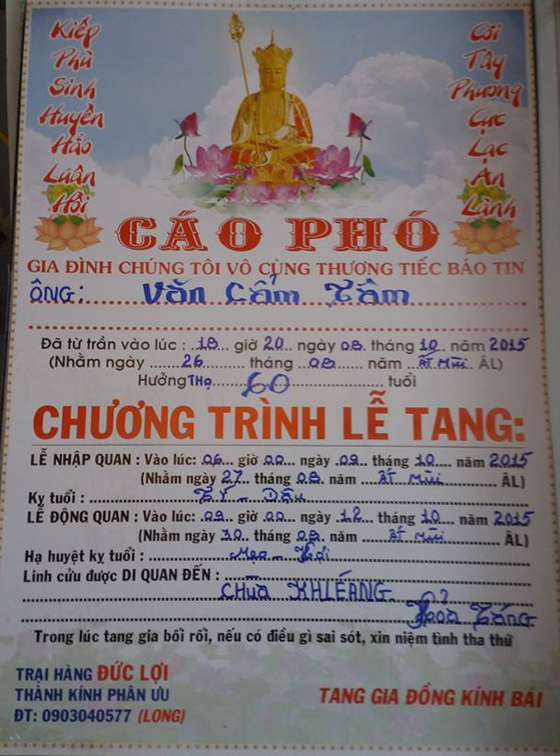 Kiếp
Phù
Sinh
Huyền
Hảo
Luân
Hồi
Cõi
Tây
Phương
Cực
Lạc
An
Lành
CÁO PHÓ
GIA ĐÌNH CHÚNG TÔI VÔ CÙNG THƯƠNG TIẾC BÁO TIN
ÔNG: Văn Cẩm Tâm
Đã từ trần vào lúc : 18 giờ 20 ngày 08 tháng 10 năm 2015
(Nhằm ngày 26 tháng 08 năm Ất Mùi ÂL)
Hưởng Thọ 60 tuổi
CHƯƠNG TRÌNH LỄ TANG:
LỄ NHẬP QUAN : Vào lúc: 06 giờ 00 ngày 09 tháng 10 năm 2015
(Nhằm ngày 27 tháng 08 năm Ất Mùi ÂL)
Kỵ tuổi : Tý - Dậu
LỄ ĐỘNG QUAN : Vào lúc: 09 giờ 00 ngày 12 tháng 10 năm 2015
(Nhằm ngày 30 tháng 08 năm Ất Mùi ÂL)
Hạ huyệt kỵ tuổi : Mẹo - Hợi
Linh cửu được DI QUAN ĐẾN :
Chùa KHLÉANG
Hoả Táng
Trong lúc tang gia bối rối, nếu có điều gì sai sót, xin niệm tình tha thứ
TRẠI HÀNG ĐỨC LỢI
THÀNH KÍNH PHÂN ƯU
ĐT: 0903040577 (LONG)
TANG GIA ĐỒNG KÍNH BÁI